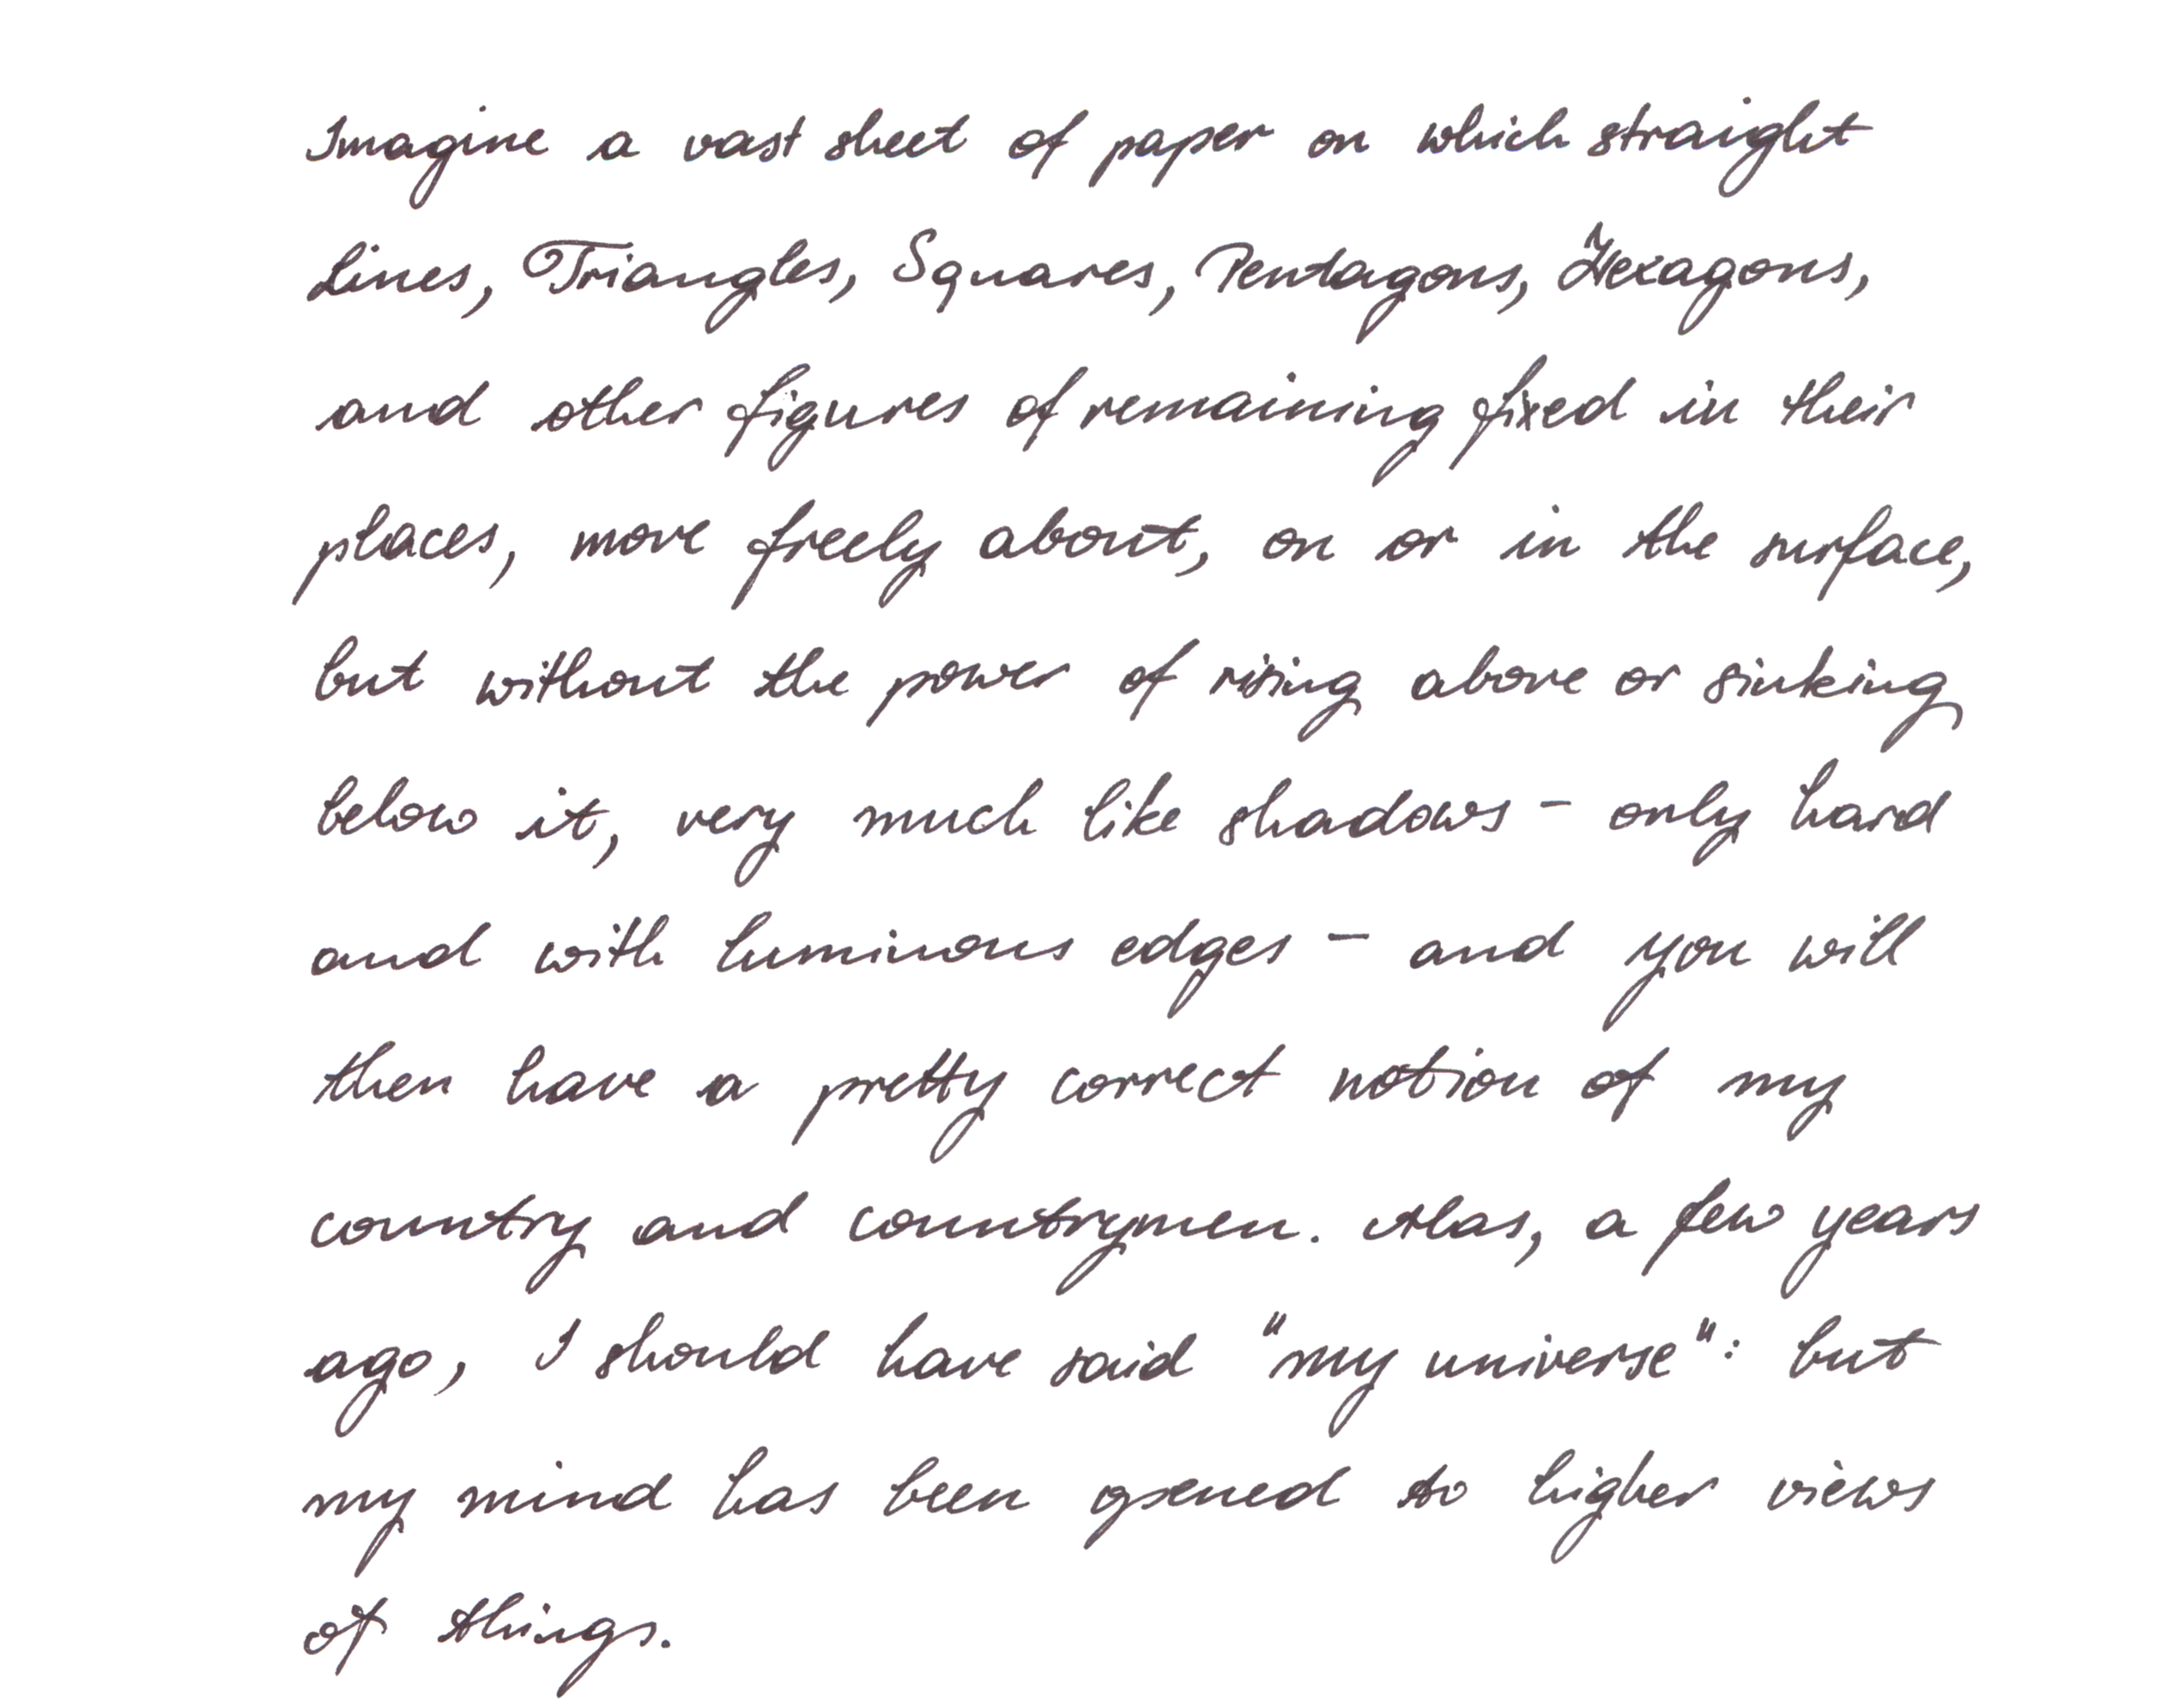 Imagine a vast sheet of paper on which straight
Lines, Triangles, Squares, Pentagons, Hexagons,
and other figures of remaining fixed in their
places, move freely about, on or in the surface,
but without the power of rising above or sinking
below it, very much like shadows - only hard
and with luminous edges - and you will
then have a pretty correct notion of my
country and countrymen. Alas, a few years
ago, I should have said "my universe": but
my mind has been opened to higher views
of things.